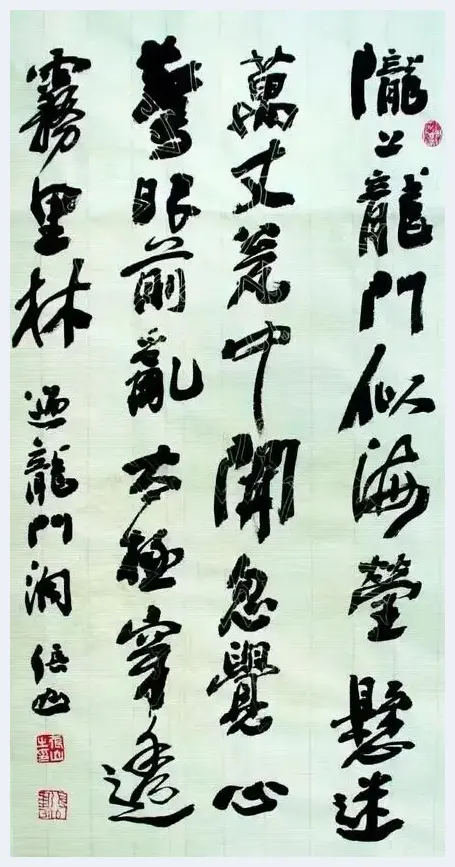 隴上龍門似海瑩懸迷
萬丈荒中開忽覺心
驚眼前亂太極穿透
霧里林 龍門洞 山